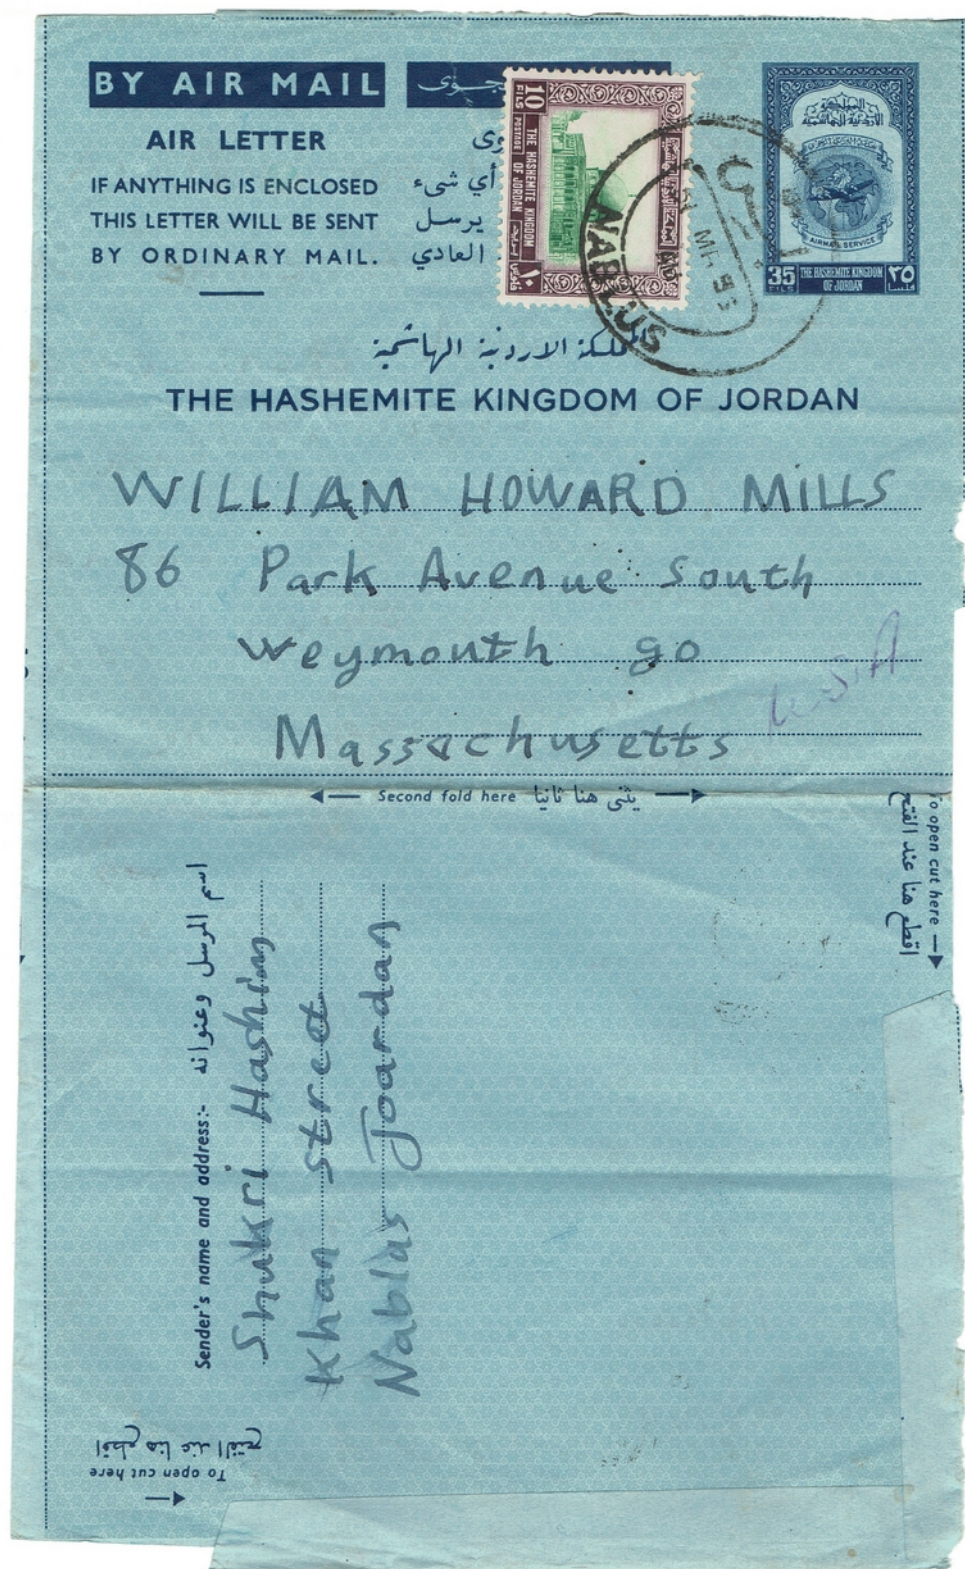 BY AIR MAIL
AIR LETTER
IF ANYTHING IS ENCLOSED
THIS LETTER WILL BE SENT
BY ORDINARY MAIL.
أي شيء
يرسل
العادي
10
FILS
POSTAGE
THE HASHEMITE KINGDOM
OF JORDAN
١٠
NABLUS
المملكة
الاردنية الهاشمية
AIRMAIL SERVICE
35
FILS
THE HASHEMITE KINGDOM
OF JORDAN
٣٥
فلسا
المملكة الاردنية الهاشمية
THE HASHEMITE KINGDOM OF JORDAN
WILLIAM HOWARD MILLS
86 Park Avenue South
Weymouth 90
Massachusetts
USA
Second fold here يثنى هنا ثانيا
To open cut here
اقطع هنا عند الفتح
Sender's name and address:- اسم المرسل وعنوانه
Shukri Hashim
Khan street
Nablas Joardan
اقطع هنا عند الفتح
To open cut here